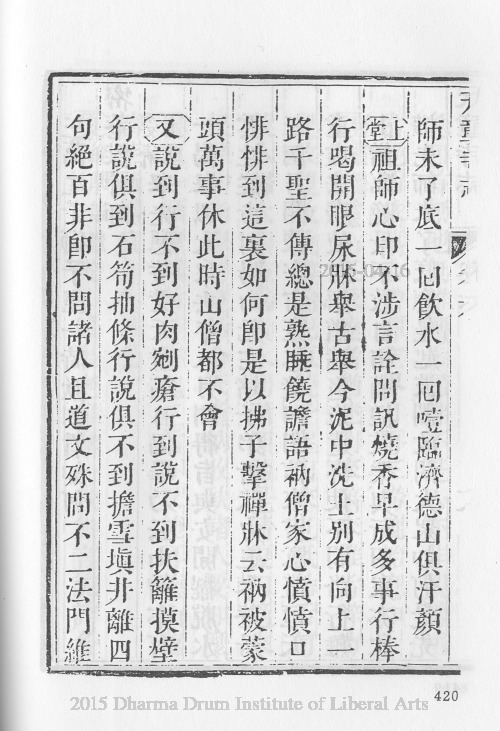 師未了底一回飲水一回噎臨濟德山俱汗顏
上堂祖師心印不涉言詮問訊燒香早成多事行棒
行喝開眼尿牀舉古舉今泥中洗土別有向上一
路千聖不傳總是熟睡饒譫語衲僧家心憤憤口
悱悱到這裏如何卽是以拂子擊禪牀云衲被蒙
頭萬事休此時山僧都不會
又說到行不到好肉剜瘡行到說不到扶籬摸壁
行說俱到石笱抽條行說俱不到擔雪塡井離四
句絕百非卽不問諸人且道文殊問不二法門維
420
2015 Dharma Drum Institute of Liberal Arts